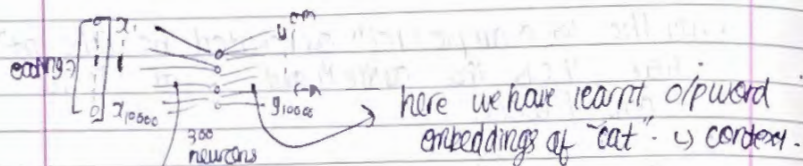 x₁
eating →
x10000
y10000
300
neurons
here we have learnt o/p word
embeddings of "cat". ↳ context.